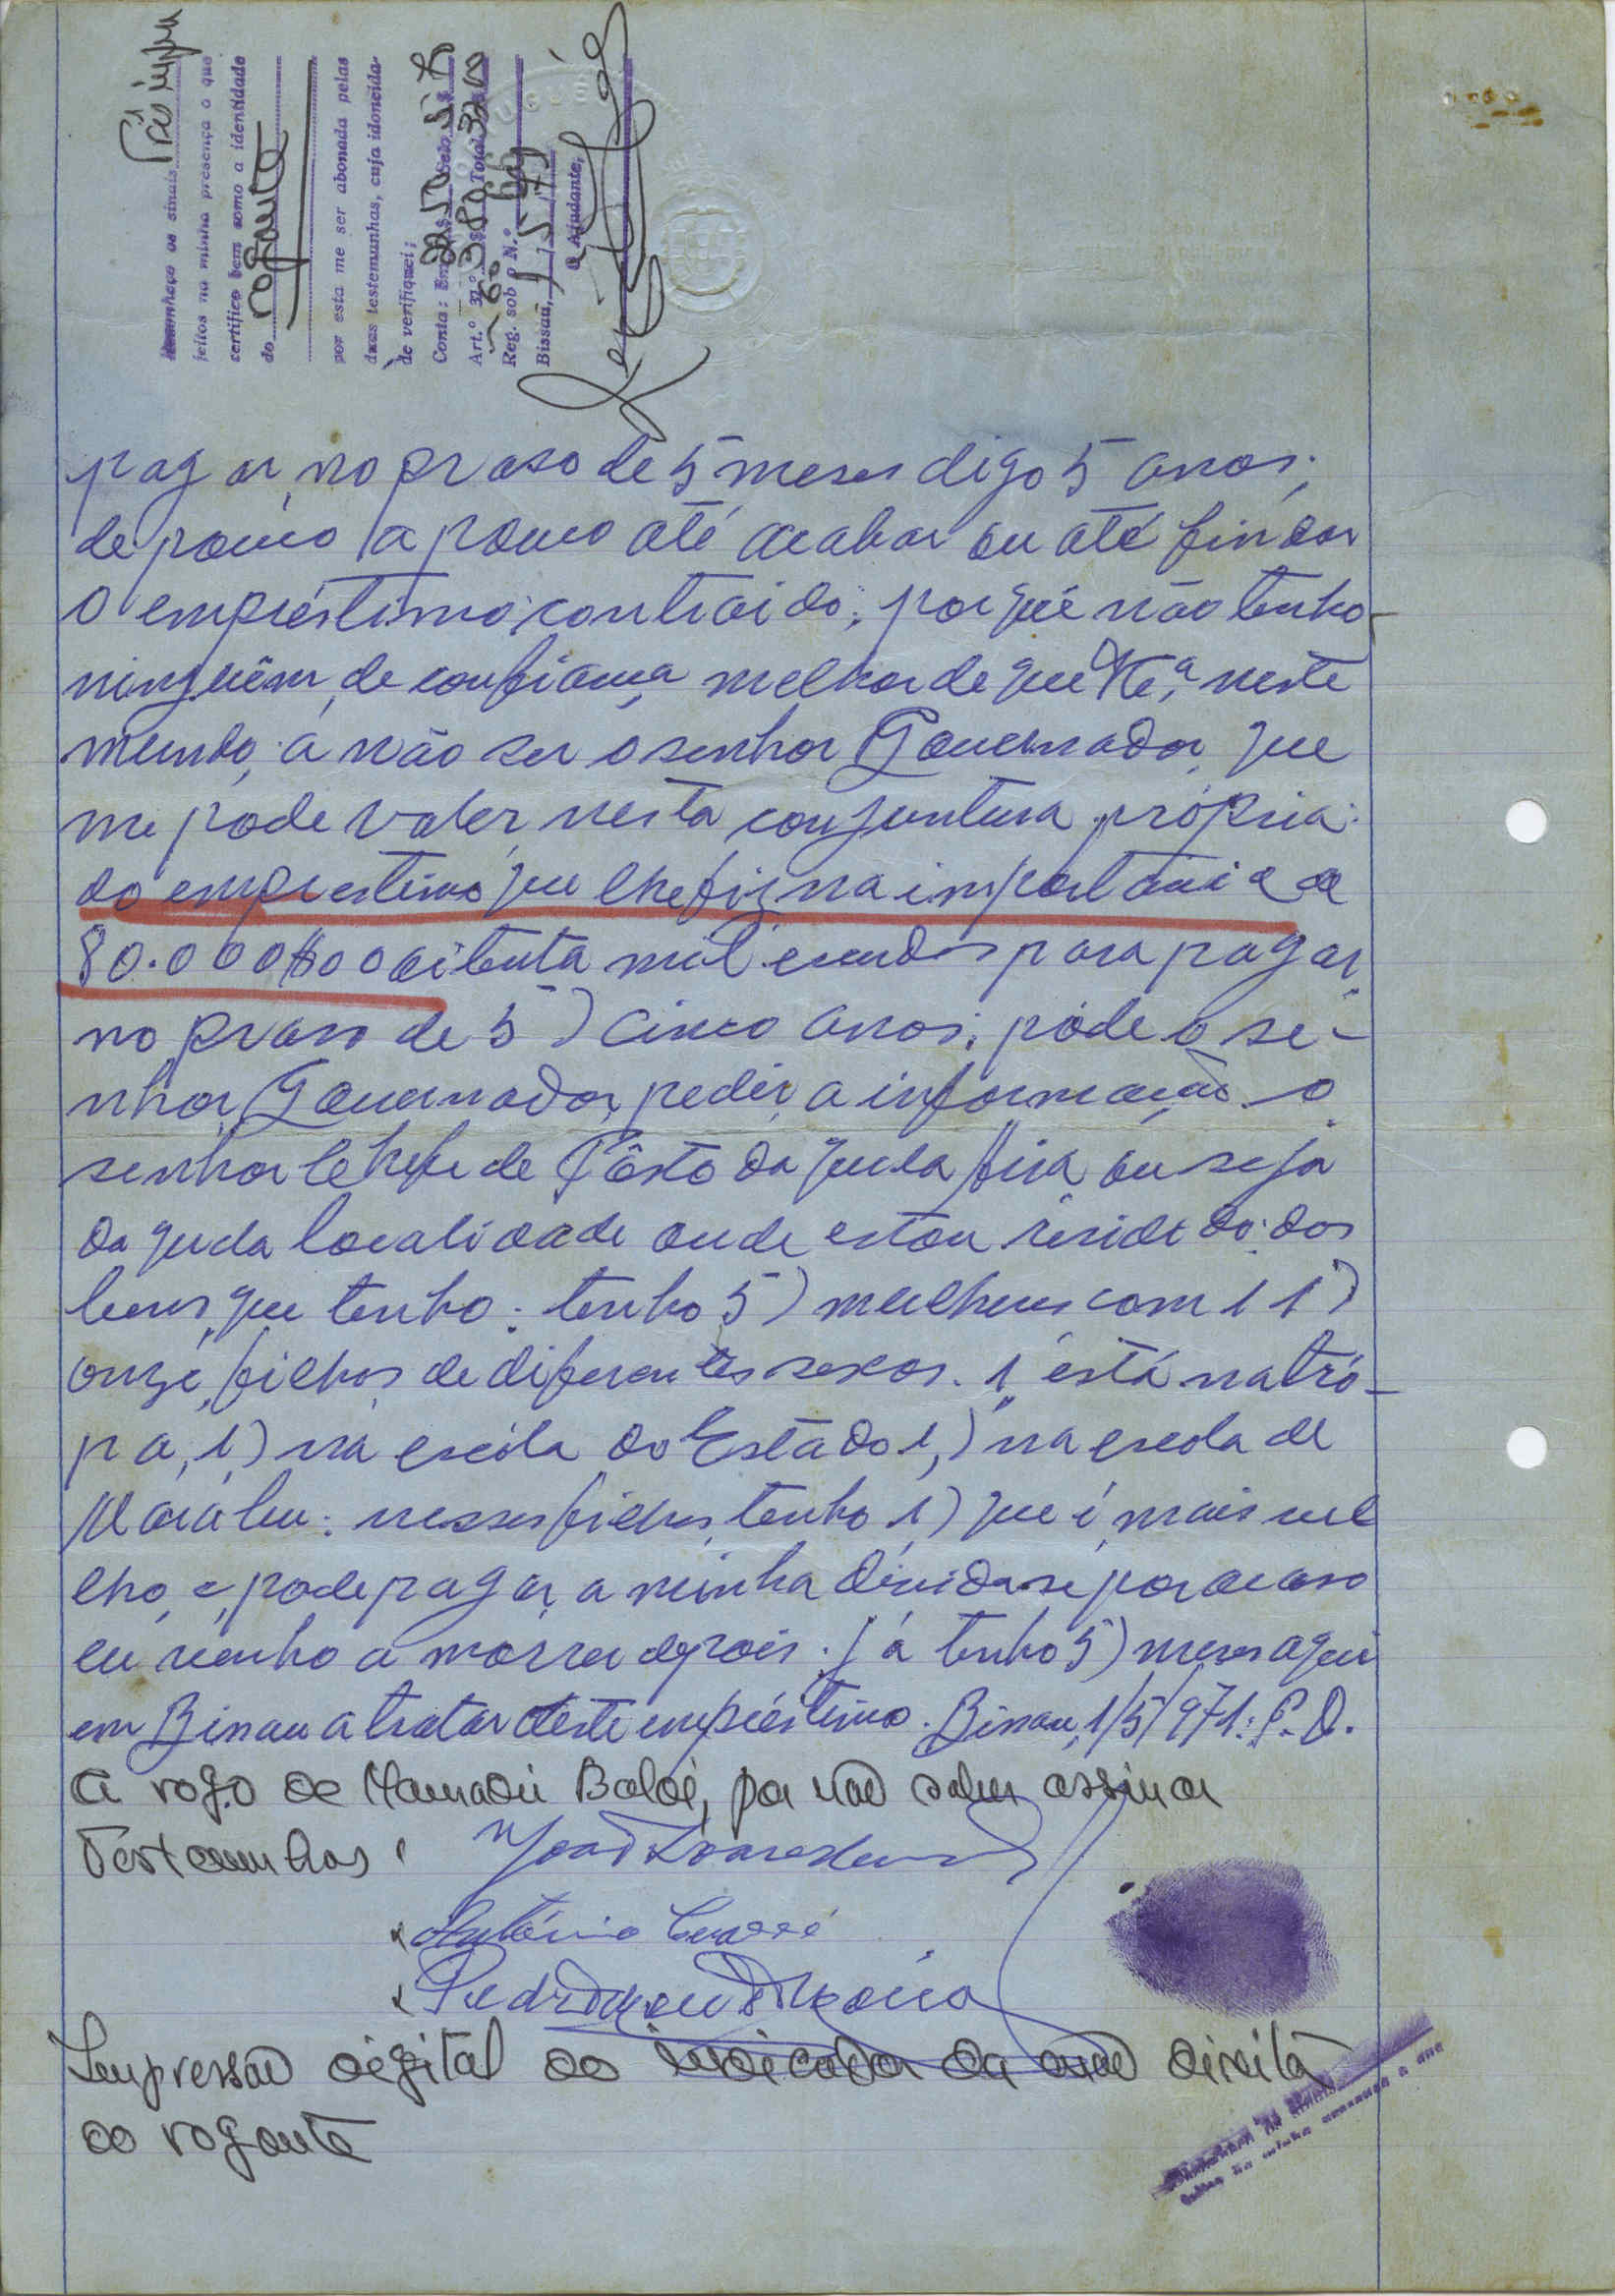 Três impre
Reconheço os sinais
feitos na minha presença o que
certifico bem como a identidade
do rogante
por esta me ser abonada pelas
duas testemunhas, cuja idoneida-
de verifiquei;
Conta: Selo
Art.º Total
Reg. sob o N.º
Bissau, 1/5/71
O Ajudante,
pagar, no praso de 5 meses digo 5 anos;
de pouco a pouco até acabar ou até findar
o empréstimo contraido; porquê não tenho
ninguêm, de confiança melhor de que V. Exª neste
mundo; a não ser o senhor Governador, que
me pode valer, nesta conjuntura própria:
do emprestimo que lhe fiz na importância de
80.000$00 oitenta mil escudos para pagar
no praso de 5) cinco anos; pode o se-
nhor, Governador, pedir, a informação o
senhor Chefe de Pôsto daquela área ou seja
daquela localidade onde estou residido: dos
bens, que tenho: tenho 5) mulheres com 11)
onze, filhos de diferentes sexos. 1, está na tró-
pa, 1) na escóla do Estado 1,) na escola de
nesses filhos, tenho 1) que é mais vel
lho, e pode pagar, a minha divida se por acaso
eu venho a morrer depois. já tenho 5) meses aqui
em Bissau a tratar deste empréstimo. Bissau, 1/5/971: P. D.
A rogo de Mamadú Baldé, por não saber assinar
Testemunhas:
António
Pedro
Impressão digital do indicador da mão direita
do rogante